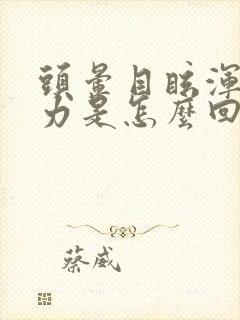 頭暈目眩渾
力是怎麼回
蔡威